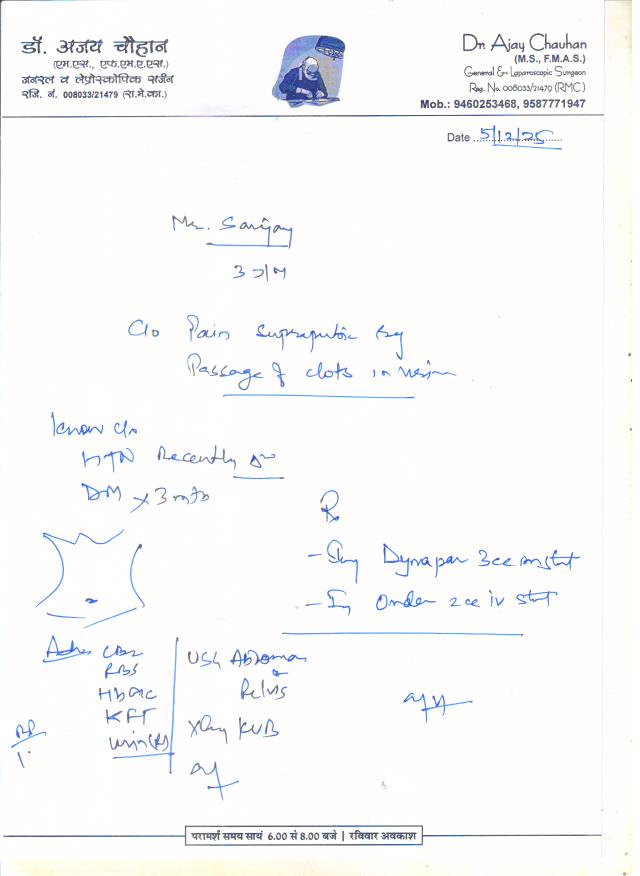 डॉ. अजय चौहान
(एम.एस., एफ.एम.ए.एस.)
जनरल व लेप्रोस्कोपिक सर्जन
रजि. नं. 008033/21479 (रा.मे.का.)
Dr. Ajay Chauhan
(M.S., F.M.A.S.)
General & Laparoscopic Surgeon
Reg. No. 008033/21479 (RMC)
Mob.: 9460253468, 9587771947
Date 5/12/25
Mr. Sanjay
C/o Pain suprapubic
Passage of clots in
Know c/o
HTN Recently
DM x 3
Rx
- Dynapar 3cc im stat
- Onden 2cc iv stat
CBC
RBS
HbA1c
KFT
USG Abdomen
Pelvis
Xray KUB
परामर्श समय सायं 6.00 से 8.00 बजे | रविवार अवकाश